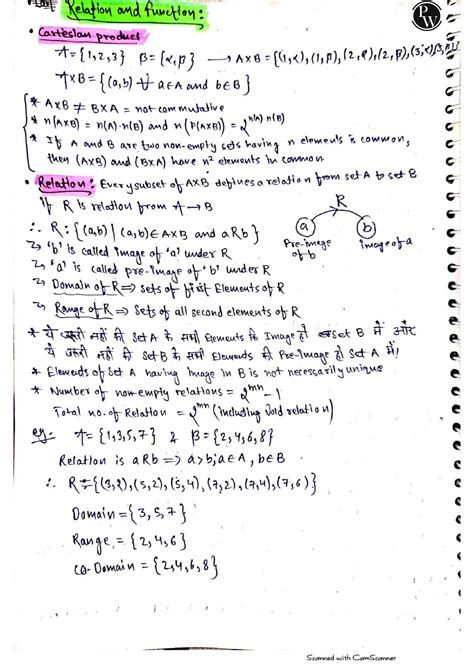 Relation and function:
• Cartesian product
A = {1,2,3} B = {α,β} → A×B = {(1,α),(1,β),(2,α),(2,β),(3,α)(3,β)}
A×B = {(a,b) ∀ a∈A and b∈B}
* A×B ≠ B×A = not commutative
* n(A×B) = n(A)·n(B) and n(P(A×B)) = 2^{n(A)·n(B)}
* If A and B are two non-empty sets having n elements is common,
then (A×B) and (B×A) have n² elements in common
• Relation: Every subset of A×B defines a relation from set A to set B
If R is relation from A → B
∴ R: {(a,b) | (a,b) ∈ A×B and aRb}
R
a b
Pre-image of b
image of a
'b' is called image of 'a' under R
'a' is called pre-image of 'b' under R
Domain of R ⇒ Sets of first Elements of R
Range of R ⇒ Sets of all second elements of R
* ये जरूरी नहीं की Set A के सभी Elements कि Image हो Set B में और
ये जरूरी नहीं की Set B के सभी Elements की Pre-Image हो Set A में!
* Elements of Set A having image in B is not necessarily unique
* Number of non-empty relations = 2^{mn} - 1
Total no. of Relation = 2^{mn} (including Void relation)
eg:- A = {1,3,5,7} & B = {2,4,6,8}
Relation is aRb ⇒ a>b; a∈A, b∈B
∴ R = {(3,2),(5,2),(5,4),(7,2),(7,4),(7,6)}
Domain = {3,5,7}
Range = {2,4,6}
co-Domain = {2,4,6,8}
P
W
Scanned with CamScanner